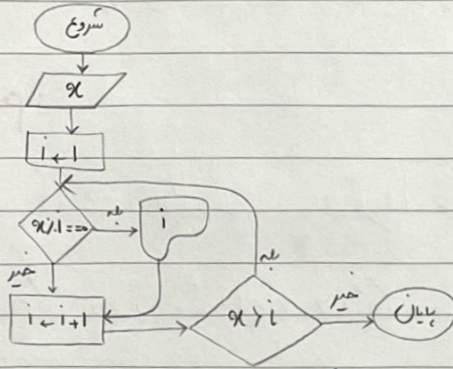 شروع
x
i ← 1
x % i == 0
بله
i
خیر
i ← i+1
x > i
بله
خیر
پایان